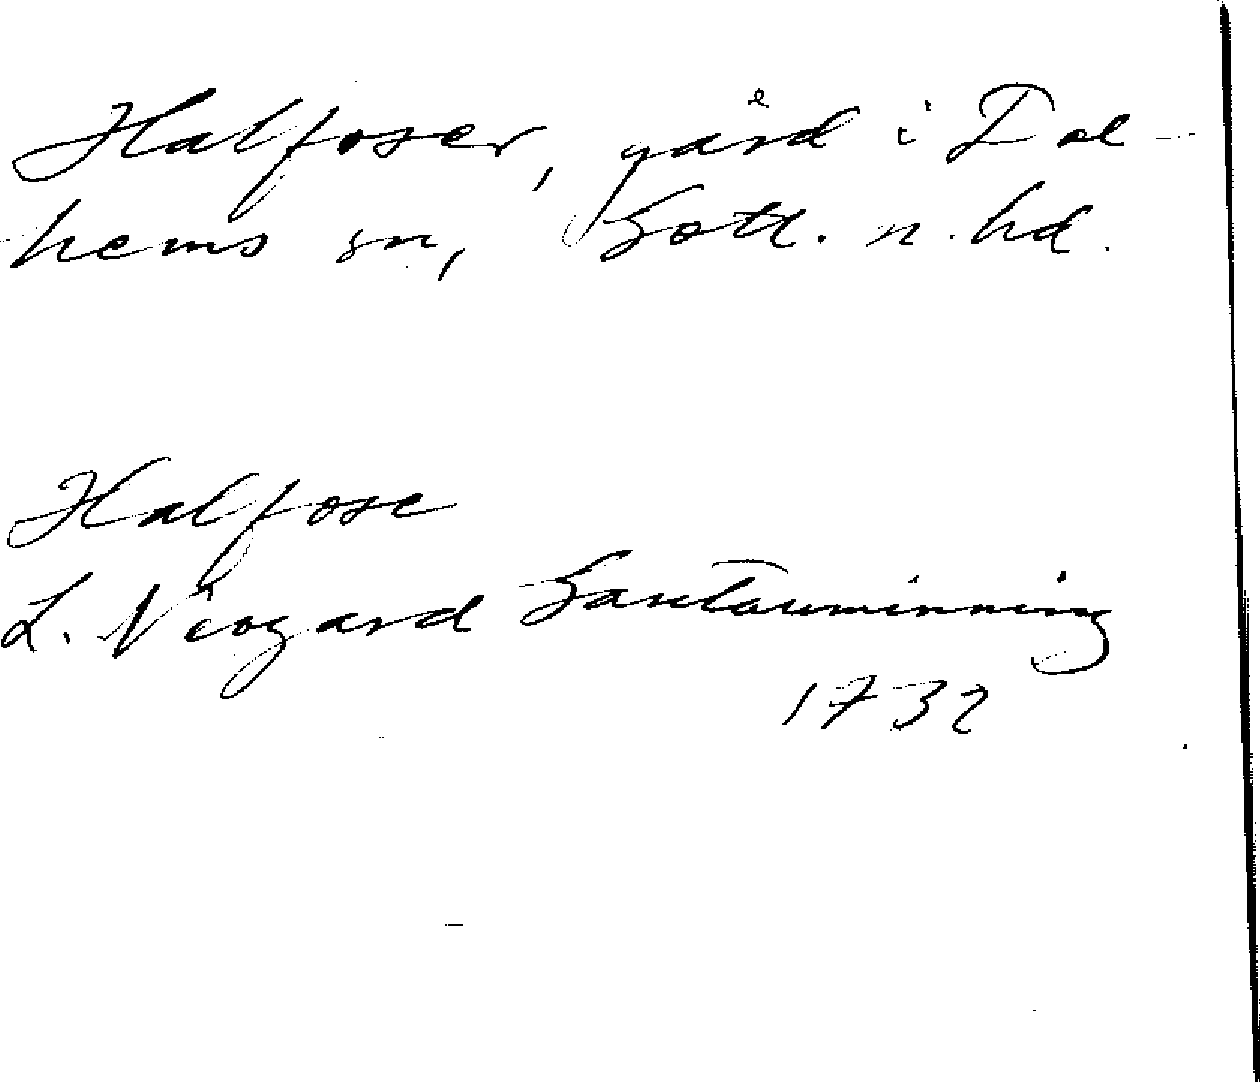 Halfoser, gård i Dal-
hems sn, Gotl. n. hd.
Halfose
L. Neogard Gautauminning
1732